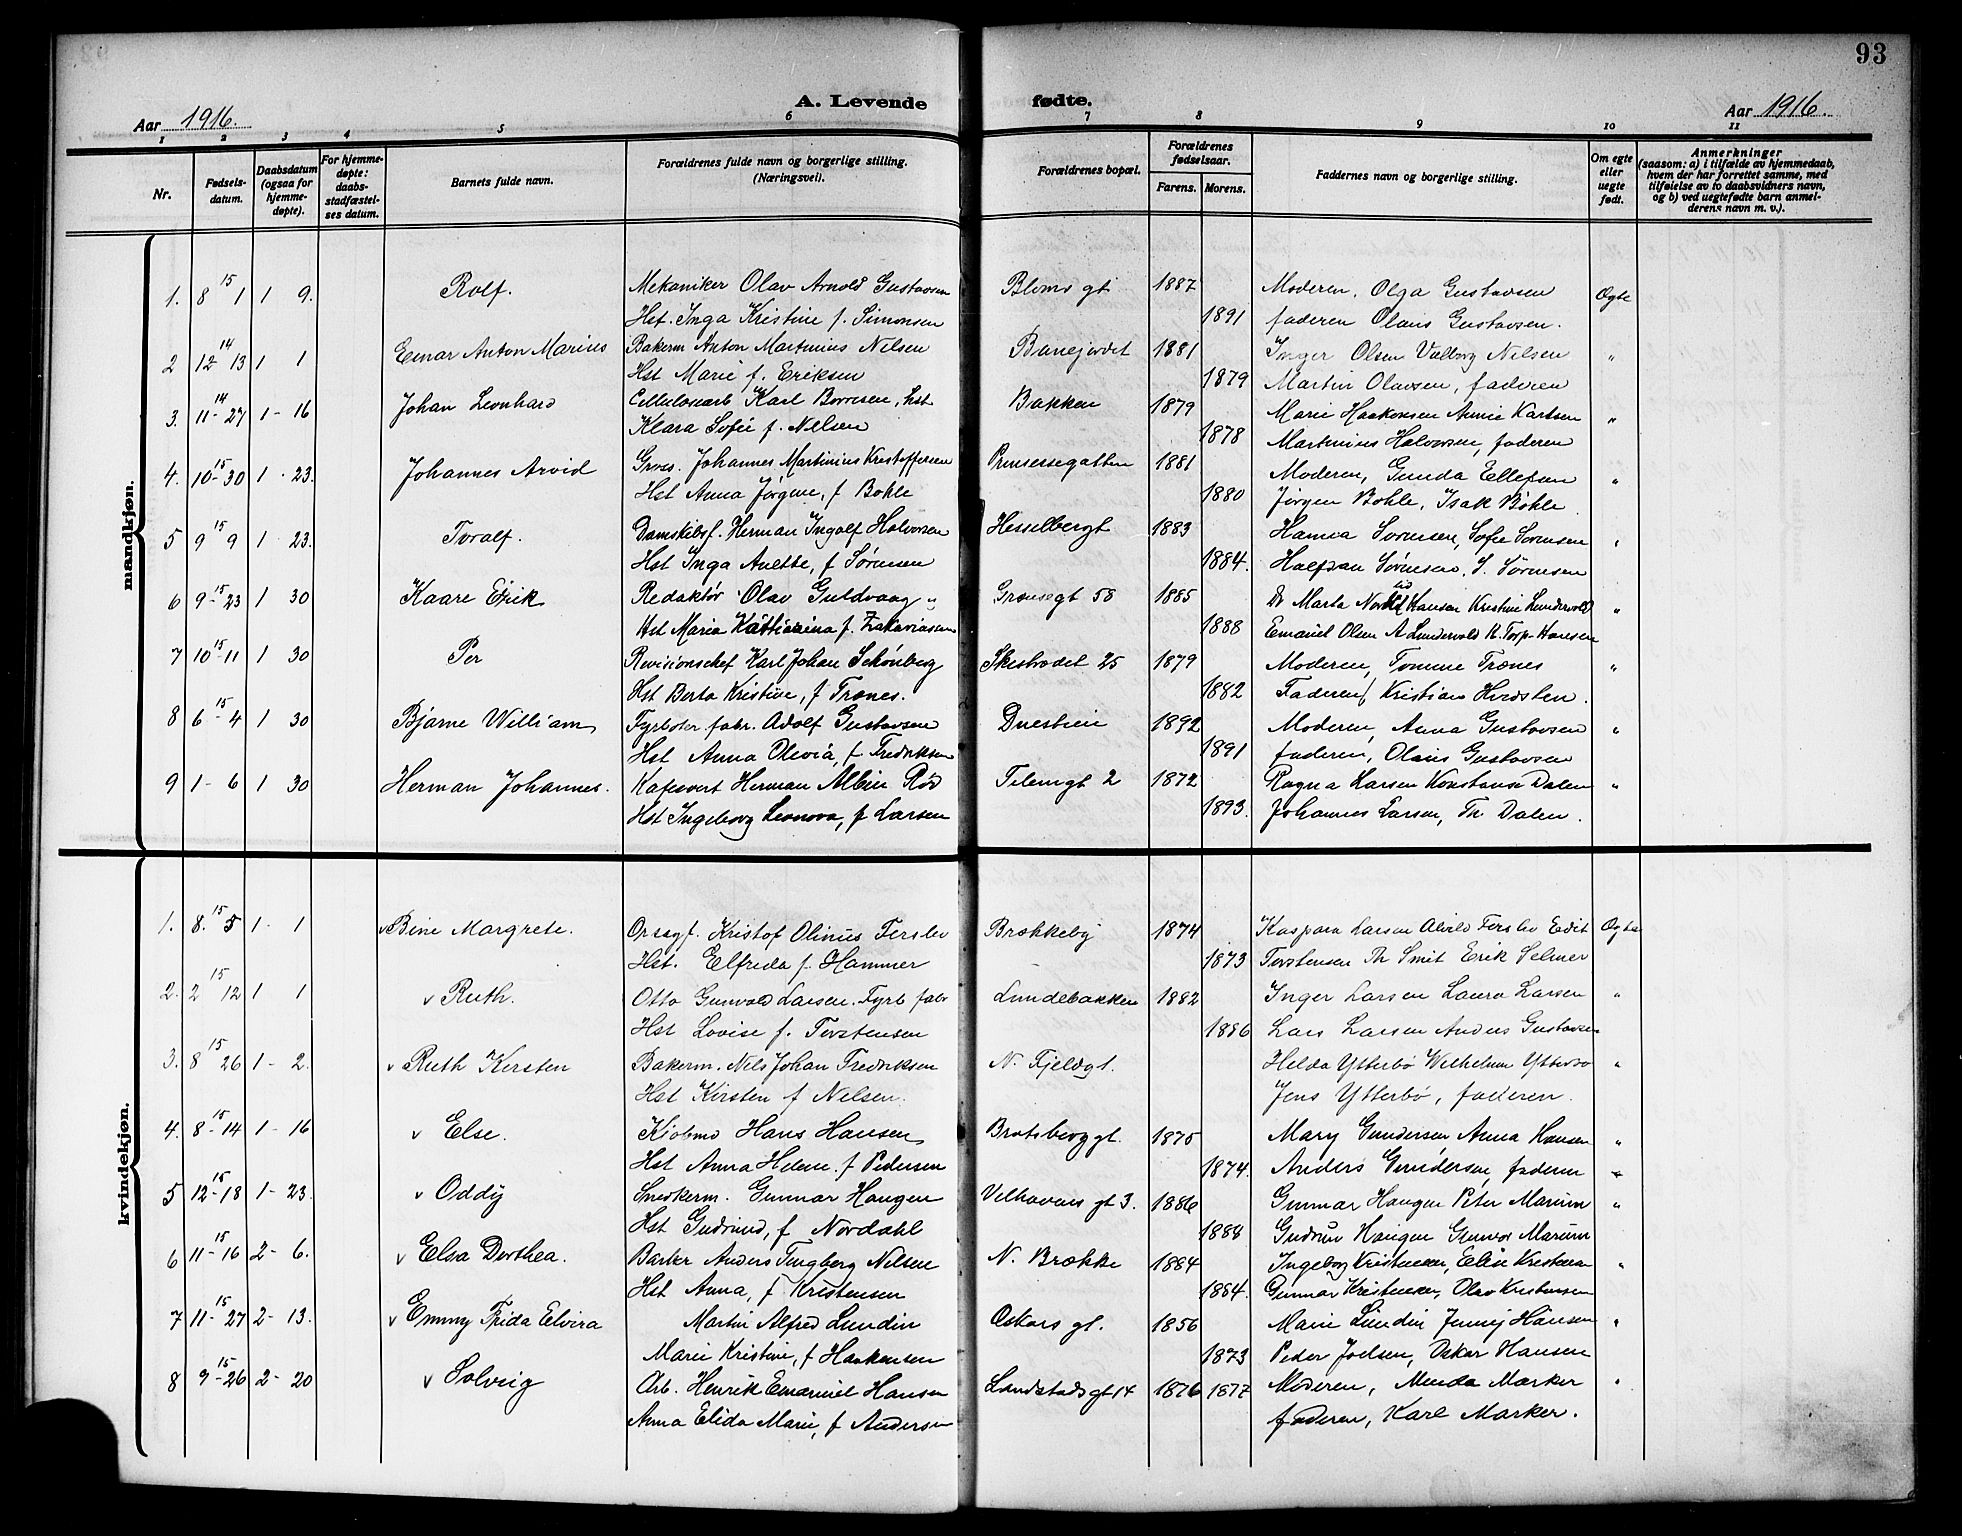 93
A. Levende fødte.
Aar 1916.
Aar 1916.
1 2 3 4 5 6 7 8 9 10 11
Nr.
Fødsels-
datum.
Daabsdatum
(ogsaa for
hjemme-
døpte).
For hjemme-
døpte:
daabs-
stadfæstel-
ses datum.
Barnets fulde navn.
Forældrenes fulde navn og borgerlige stilling.
(Næringsvei).
Forældrenes bopæl.
Forældrenes
fødselsaar.
Farens. Morens.
Faddernes navn og borgerlige stilling.
Om egte
eller
uegte
født.
Anmerkninger
(saasom: a) i tilfælde av hjemmedaab,
hvem der har forrettet samme, med
tilføielse av to daabsvidners navn,
og b) ved uegtefødte barn anmel-
derens navn m. v.).
mandkjøn.
1. 8 15 1 1 9. Rolf. Mekaniker Olav Arnold Gustavsen Bloms gt 1887 Moderen, Olga Gustavsen Ægte
Hst. Inga Kristine f. Simonsen 1891 faderen Olaus Gustavsen.
2 12 14 13 1 1 Einar Anton Marius Bakerm Anton Martinius Nilsen Banejordet 1881 Inger Olsen Valborg Nilsen "
Hst Marie f. Eriksen 1879 Martin Olavsen, faderen
3. 11 14 - 27 1 - 16 Johan Leonhard Cellulosearb Karl Borresen, hst Bakken 1879 Marie Haakonsen Annie Karlsen "
Klara Sofie f. Nilsen 1878 Martinius Halvorsen, faderen
4. 10 15 - 30 1 - 23. Johannes Arvid Johannes Martinius Kristoffersen Prinsessegatten 1881 Moderen, Gunda Ellefsen "
Hst Anna Jørgine, f Bøhle 1880 Jørgen Bøhle, Isak Bøhle
5 9 15 9 1 23. Toralf. Damskibsf. Herman Ingolf Halvorsen Hesselbergt 1883 Hanna Sørensen, Sofie Sørensen "
Hst Inga Anette, f Sørensen 1884. Halfdan Sørensen, S. Sørensen
6 9 15 - 23 1 30 Kaare Erik Redaktør Olav Guldvaag " Grønsegt 58 1885 Dr Marta Hansen Kristine Lundervold "
Hst Maria Kathiarina f. Zakariassen 1888 Emanuel Olsen A Lundervold R. Torp-Hansen
7 10 15 - 11 1 30 Per Revisionschef Karl Johan Schönberg 25 1879 Moderen, Tomine Trænes "
Hst Berta Kristine, f Trænes. 1882 Faderen,
8 6 15 - 4 1 30 Bjarne William Fyrbøter fabr. Adolf Gustavsen Duestien 1892 Moderen, Anna Gustavsen "
Hst Anna Olevia, f Fredriksen 1891 faderen, Olaus Gustavsen
9 1 - 6 1 30 Herman Johannes. Kafevert Herman Albin Rød Telemgt 2 1872 Ragna Larsen Konstanse Dalen "
Hst Ingeborg Leonora, f Larsen 1893. Johannes Larsen, Th. Dalen.
kvindekjøn.
1. 8. 15 5 1. 1 v Bine Margrete. Opsagf. Kristof Olinus Ferslev Brækkeby 1874 Kaspara Larsen Alvild Ferslev Edit Ægte
Hst. Elfrida f. Hammer 1873 Torstensen Th Smit Erik Selmer
2. 2 15 12 1 1 v Ruth. Otto Gunvald Larsen. Fyrb fabr Lundebakken 1882 Inger Larsen Laura Larsen "
Hst Lovise f. Torstensen 1886 Lars Larsen Anders Gustavsen
3. 8 15 26 1 - 2. v Ruth Kirsten Bakerm. Nils Johan Fredriksen N. Fjeldgt. Helda Ytterbø Wilhelm Ytterbø "
Hst Kirsten f Nilsen. Jens Ytterbø, faderen.
4. 8 15 - 14 1 - 16 v Else. Kjøbmd Hans Hansen Bratsberg gt. 1875 Mary Gundersen, Anna Hansen "
Hst Anna Helene. f Pedersen 1874. Anders Gundersen, faderen "
5 12 15 - 18 1 - 23. v Oddy Snedkerm. Gunnar Haugen Velhavens gt 3. 1886 Gunnar Haugen Peter Marum "
Hst Gudrund, f Nordahl 1884 Gudrun Haugen Gunvor Marum
6 11 15 - 16 2 - 6. v Elsa Dorthea. Anders Tingberg Nilsen N. Brække 1884 Ingeborg Kristensen, Elise Kristensen "
Hst Anna, f Kristensen 1884. Gunnar Kristensen, Olav Kristensen
7 11 15 - 27 2 - 13. v Emmy Frida Elvira Martin Alfred Lundin Oskars gt. 1856 Marie Lundin Jenny Hansen "
Marie Kristine, f Haakensen 1873 Peder Joelsen, Oskar Hansen
8 9 15 - 26 2 - 20 v Solveig Arb. Henrik Emanuel Hansen Landstads gt 14 1876 1877 Moderen, Minda Marker "
Anna Elida Marie, f Andersen faderen, Karl Marker.